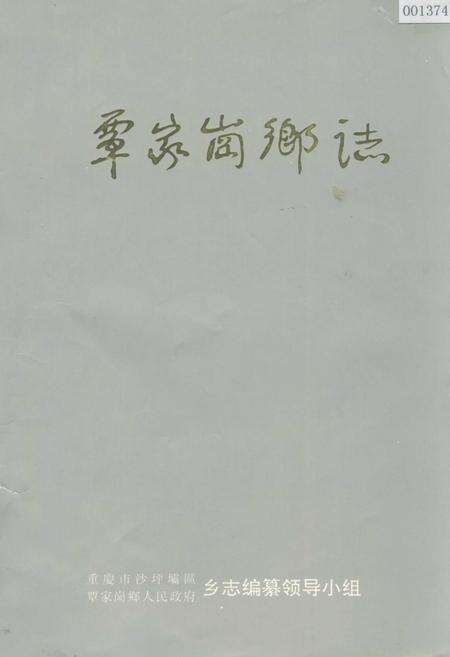 001374
覃家崗鄉誌
重慶市沙坪壩區
覃家崗鄉人民政府 乡志编纂领导小组